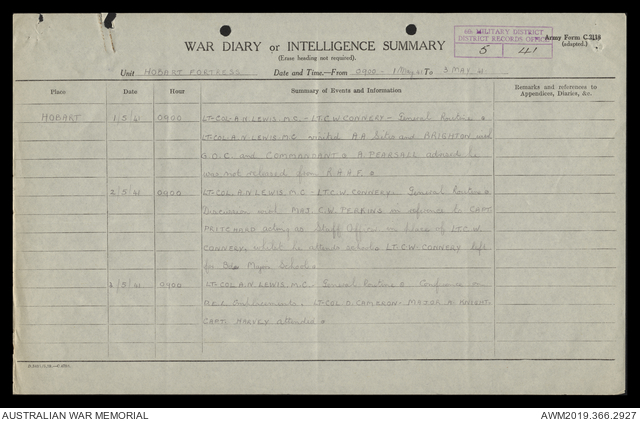 6th MILITARY DISTRICT
DISTRICT RECORDS OFFICE
5 41
Army Form C.2118
(adapted.)
WAR DIARY or INTELLIGENCE SUMMARY
(Erase heading not required).
Unit HOBART FORTRESS Date and Time—From 0900 - 1 May 41 To 3 MAY 41
Place Date Hour Summary of Events and Information Remarks and references to Appendices, Diaries, &c.
HOBART 1/5/41 0900 LT-COL. A.N. LEWIS. M.C. - LT. C.W. CONNERY - General Routine
LT-COL. A.N. LEWIS. M.C visited A.A. Sites and BRIGHTON with
G.O.C. and COMMANDANT A. PEARSALL advised he
was not released from A.H.Q.
2/5/41 0900 LT-COL. A.N. LEWIS. M.C - LT. C.W. CONNERY. General Routine
Discussion with MAJ. C.W. PERRINS in reference to CAPT.
PRITCHARD acting as Staff Officer in place of LT. C.W.
CONNERY, whilst he attends school. LT. C.W. CONNERY left
for Bde Major School
3/5/41 0900 LT-COL A.N. LEWIS. M.C. General Routine Conference on
D.E.L. Emplacements. LT-COL D. CAMERON - MAJOR KNIGHT.
CAPT. HARVEY attended
AUSTRALIAN WAR MEMORIAL
AWM2019.366.2927